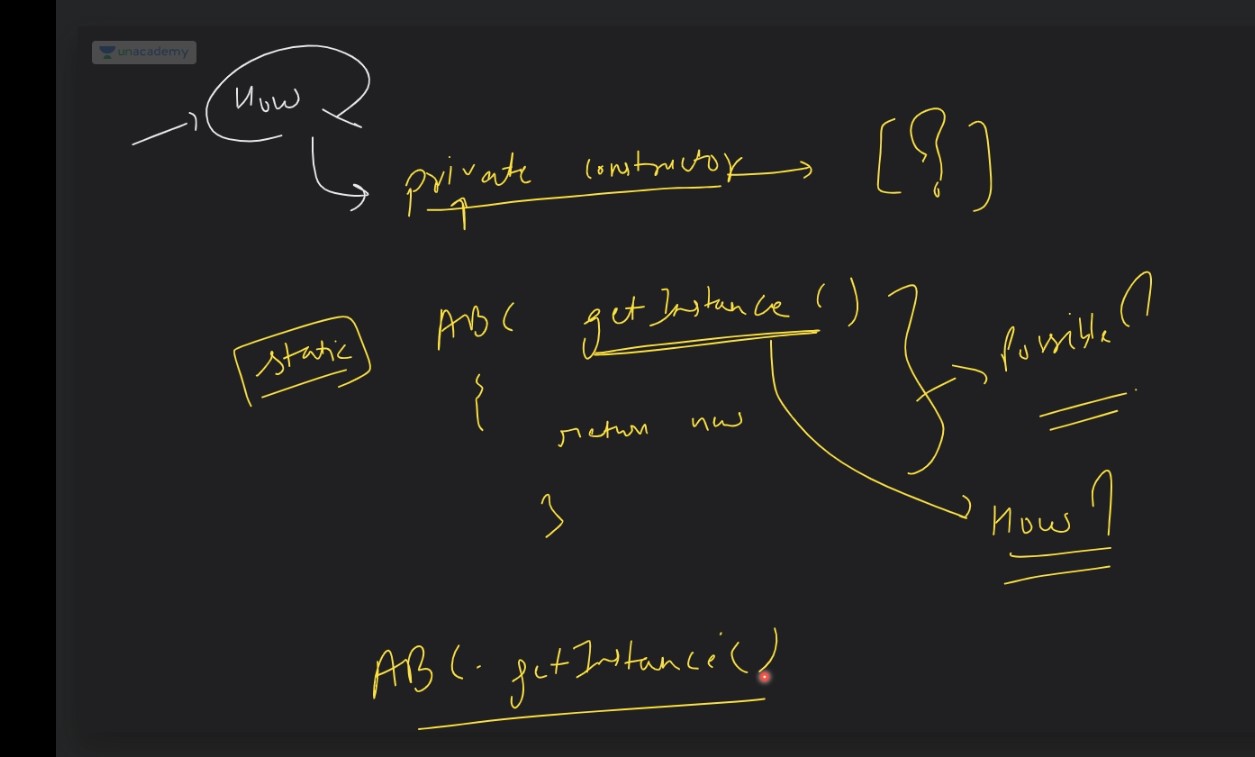 unacademy
How
private constructor → [?]
static ABC getInstance ()
{
Possible?
return new
}
How?
ABC. getInstance ()